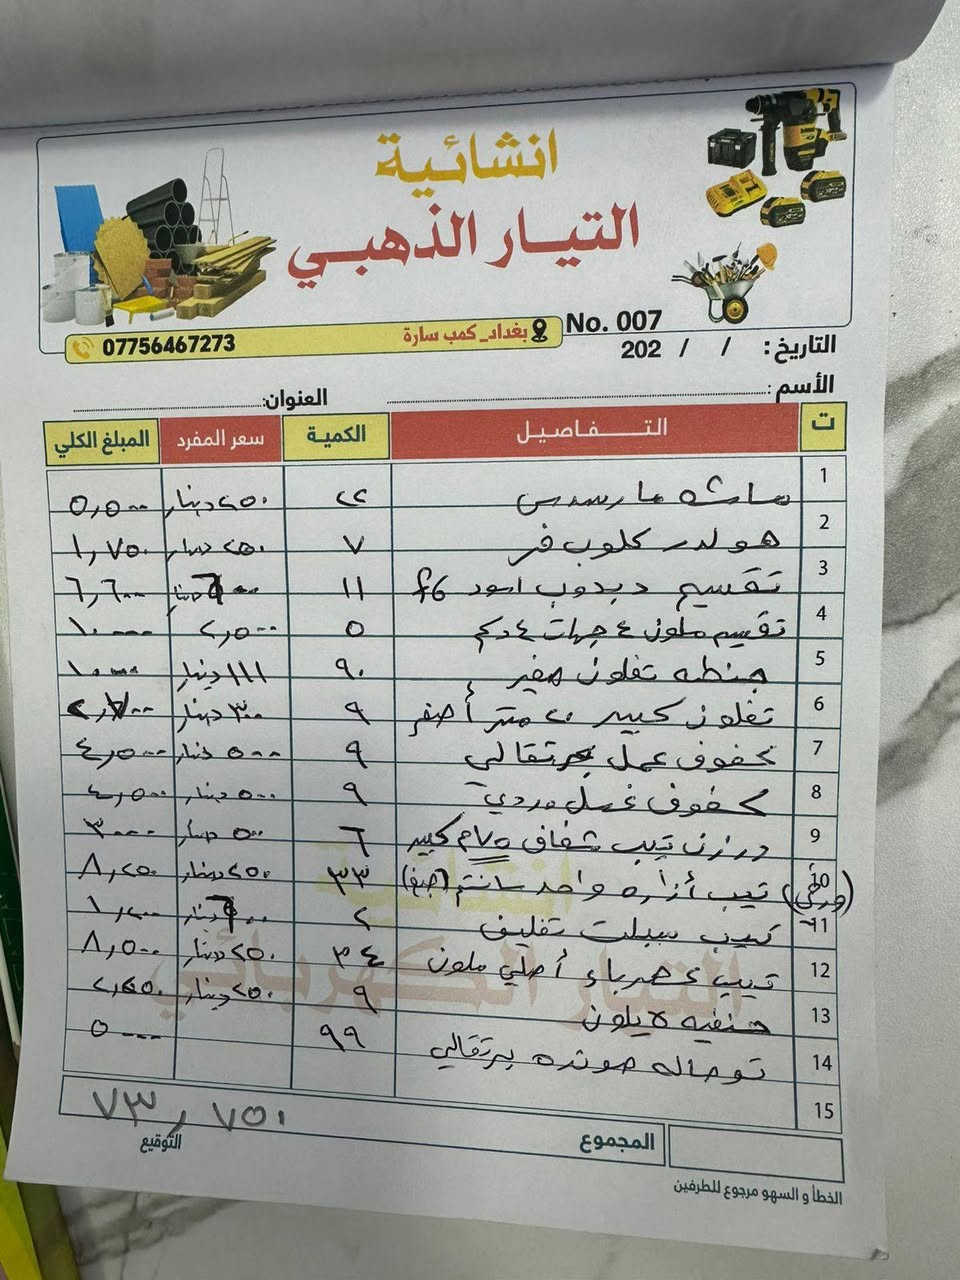 انشائية
التيار الذهبي
No. 007
بغداد_ كمب سارة
07756467273
التاريخ: / / 202
الأسم: العنوان:
ت التفاصيل الكمية سعر المفرد المبلغ الكلي
1 ماشه مارسدس ٢٢ ٢٥٠ دينار ٥,٥٠٠
2 هولدر كلوب فر ٧ ٢٥٠ دينار ١,٧٥٠
3 تقسيم دبدوب اسود f6 ١١ ٦٠٠ دينار ٦,٦٠٠
4 تقسيم ملون ٤ جهات ٤ دكم ٥ ٢,٠٠٠ ١٠,٠٠٠
5 جنطه تفلون صغير ٩٠ ١١١ دينار ١٠,٠٠٠
6 تفلون كبير ٢٠ متر أصفر ٩ ٣٠٠ دينار ٢,٧٠٠
7 كفوف عمل برتقالي ٩ ٥٠٠ دينار ٤,٥٠٠
8 كفوف غسل وردي ٩ ٥٠٠ دينار ٤,٥٠٠
9 درزن تيب شفاف ٧٥م كبير ٦ ٥٠٠ دينار ٣,٠٠٠
10 تيب أزاره واحد سانتم (اصفر) (ورقي) ٣٣ ٢٥٠ دينار ٨,٢٥٠
11 تيب سبلت تغليف ٢ ٦٠٠ دينار ١,٢٠٠
12 تيب كهرباء أصلي ملون ٣٤ ٢٥٠ دينار ٨,٥٠٠
13 حنفيه نايلون ٩ ٢٥٠ دينار ٢,٢٥٠
14 توصاله صونده برتقالي ٩٩ ٥٠٠٠
15
٧٣,٧٥٠
المجموع
التوقيع
الخطأ و السهو مرجوع للطرفين
انشائية
التيار الكهربائي